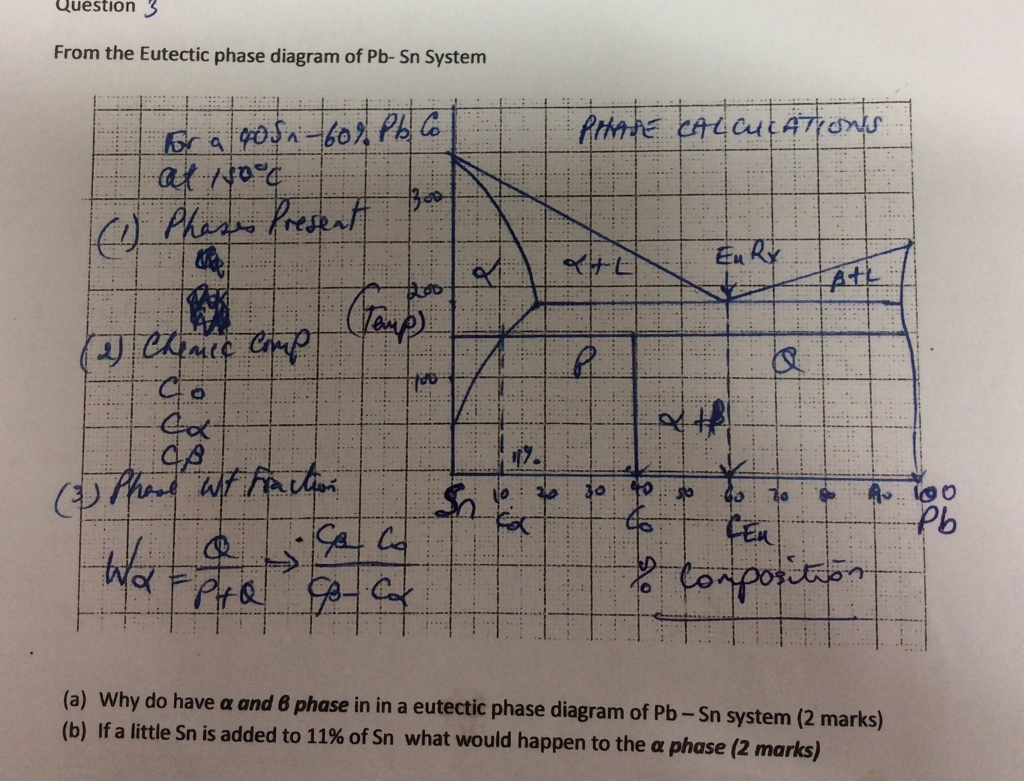 Question 3
From the Eutectic phase diagram of Pb- Sn System
For a 40Sn-60% Pb Co
at 150°C
PHASE CALCULATIONS
(1) Phases Present
300
α
α+L
Eu Rx
β+L
200
(Temp)
(2) Chemic Comp
P
Q
100
Co
Cα
α+β
Cβ
11%
(3) Phase wt Fraction
Sn 10 20 30 40 50 60 70 80 90 100
Cα Co CEu Pb
Wα = Q/P+Q → Cβ - Co/Cβ - Cα
% Composition
(a) Why do have α and β phase in in a eutectic phase diagram of Pb – Sn system (2 marks)
(b) If a little Sn is added to 11% of Sn what would happen to the α phase (2 marks)